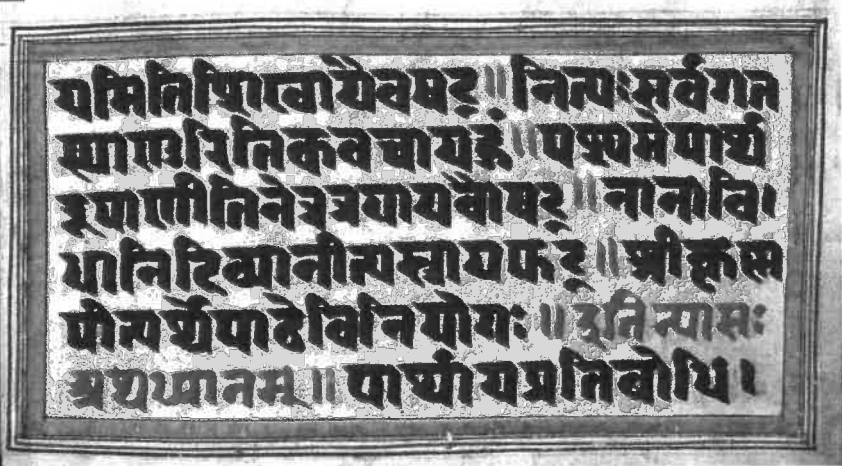 यमितिशिखायैवषट्॥नित्यःसर्वगत
स्थाणुरितिकवचायहुं॥पश्यमेपार्थ
रूपाणीतिनेत्रत्रयायवौषट्॥नानावि।
धानिदिव्यानीत्यस्त्रायफट्॥श्रीकृष्ण
प्रीत्यर्थेपाठेविनियोगः॥इतिन्यासः
अथध्यानम्॥पार्थायप्रतिबोधि।